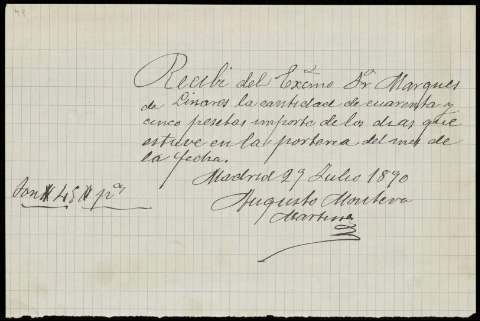 Recibi del Excmo Sr Marques
de Linares la cantidad de cuarenta y
cinco pesetas importe de los dias que
estuve en la porteria del mes de
la fecha.
Madrid 29 Julio 1890
Son # 45 # pas
Augusto
Martinez